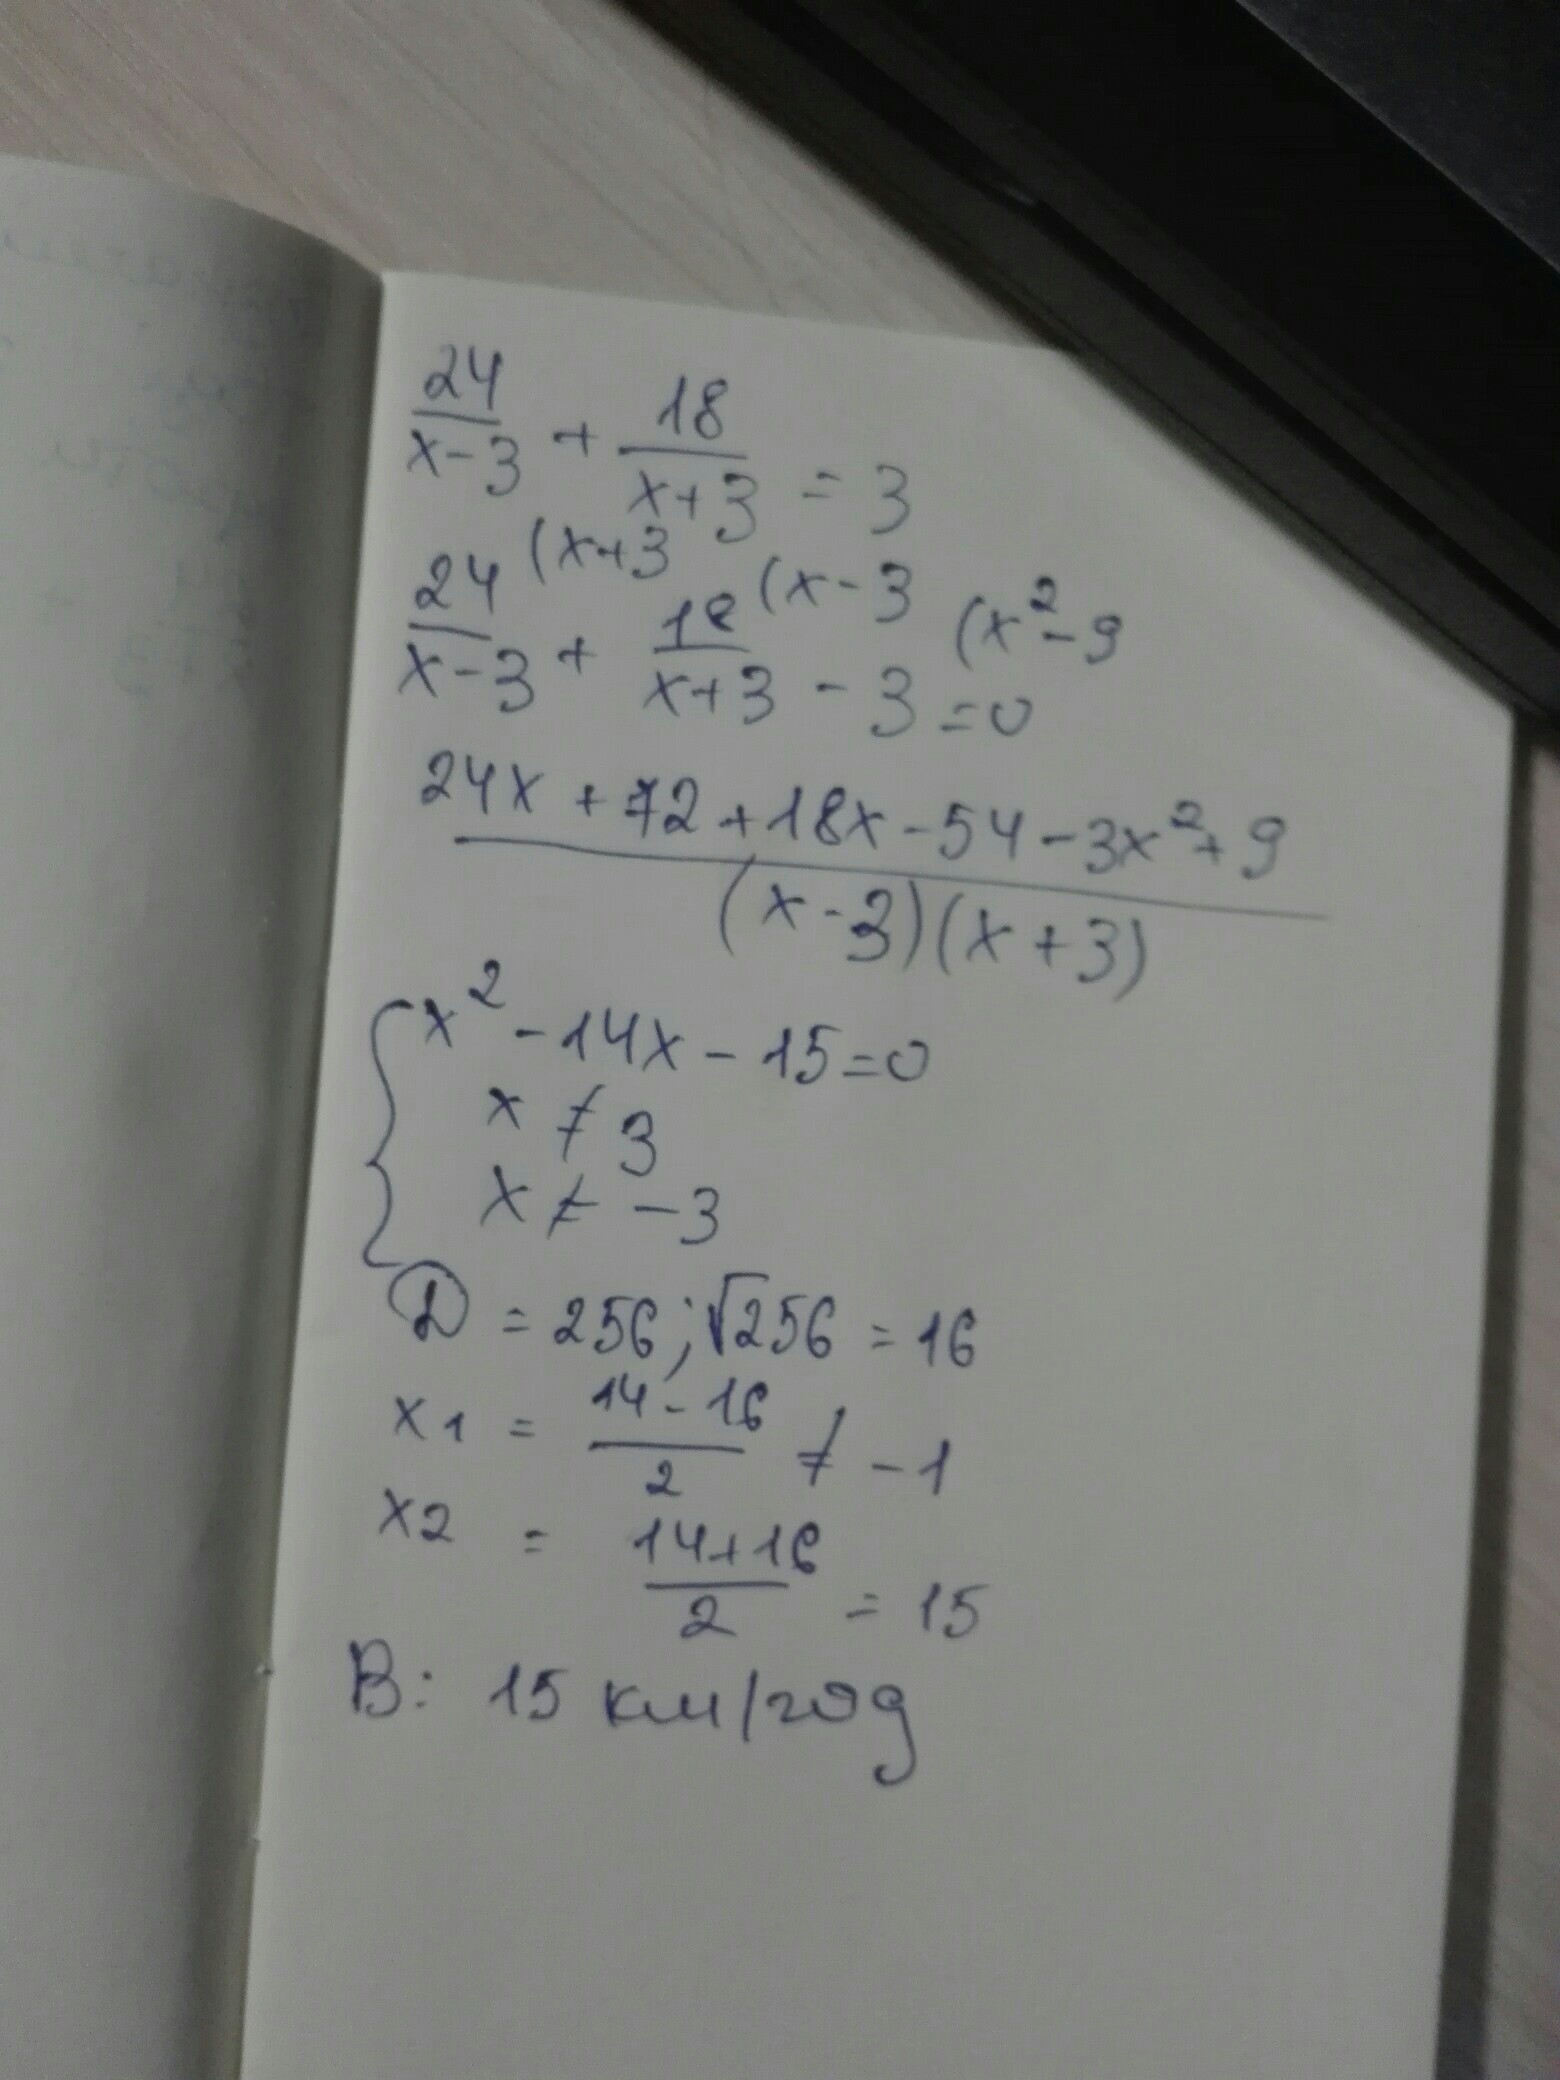 24/(x-3) + 18/(x+3) = 3
24/(x-3) (x+3 + 18/(x+3) (x-3 - 3 (x²-9 = 0
24x + 72 + 18x - 54 - 3x² + 9
(x-3)(x+3)
{ x² - 14x - 15 = 0
x ≠ 3
x ≠ -3
D = 256; √256 = 16
x1 = (14-16)/2 ≠ -1
x2 = (14+16)/2 = 15
В: 15 км/год